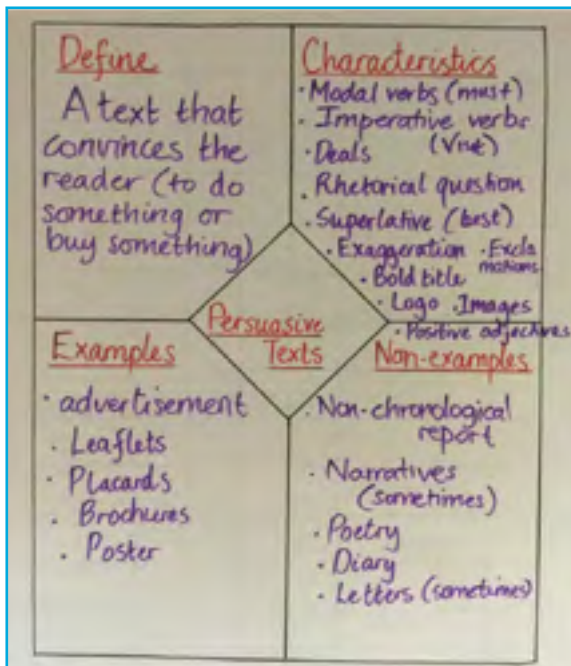 Define
A text that
convinces the
reader (to do
something or
buy something)
Characteristics
· Modal verbs (must)
· Imperative verbs
· Deals
Rhetorical question
· Superlative (best)
· Exaggeration · Excla
mations
· Bold title
· Logo · Images
· Positive adjectives
Persuasive
Texts
Examples
· advertisement
· Leaflets
· Placards
· Brochures
· Poster
Non-examples
· Non-chronological
report
· Narratives
(sometimes)
· Poetry
· Diary
· Letters (sometimes)